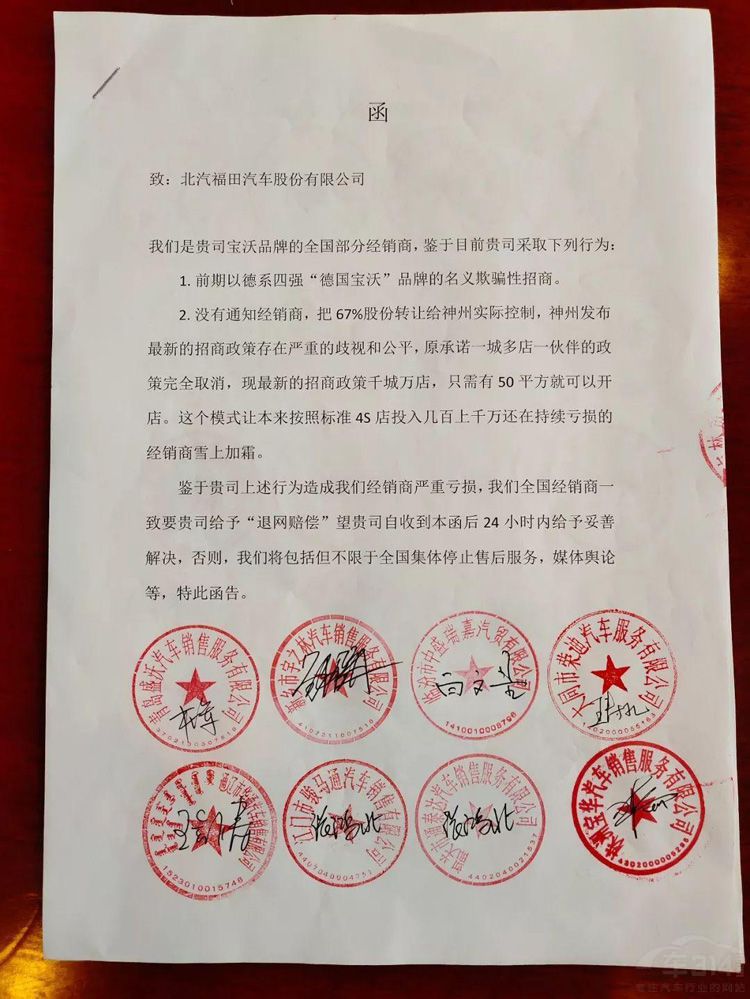 函
致：北汽福田汽车股份有限公司
我们是贵司宝沃品牌的全国部分经销商，鉴于目前贵司采取下列行为：
1. 前期以德系四强“德国宝沃”品牌的名义欺骗性招商。
2. 没有通知经销商，把 67%股份转让给神州实际控制，神州发布
最新的招商政策存在严重的歧视和公平，原承诺一城多店一伙伴的政
策完全取消，现最新的招商政策千城万店，只需有 50 平方就可以开
店。这个模式让本来按照标准 4S 店投入几百上千万还在持续亏损的
经销商雪上加霜。
鉴于贵司上述行为造成我们经销商严重亏损，我们全国经销商一
致要贵司给予“退网赔偿”望贵司自收到本函后 24 小时内给予妥善
解决，否则，我们将包括但不限于全国集体停止售后服务，媒体舆论
等，特此函告。
青岛盛沃汽车销售服务有限公司
宇之林汽车销售服务有限公司
临汾市中盛瑞嘉汽贸有限公司
1410010008798
大同市荣迪汽车服务有限公司
汽车销售有限公司
1523010015748
江门市骏马通汽车销售有限公司
4407040004751
泰达汽车销售服务有限公司
4402040021537
株洲宝华汽车销售服务有限公司
车314
专注汽车行业的网站